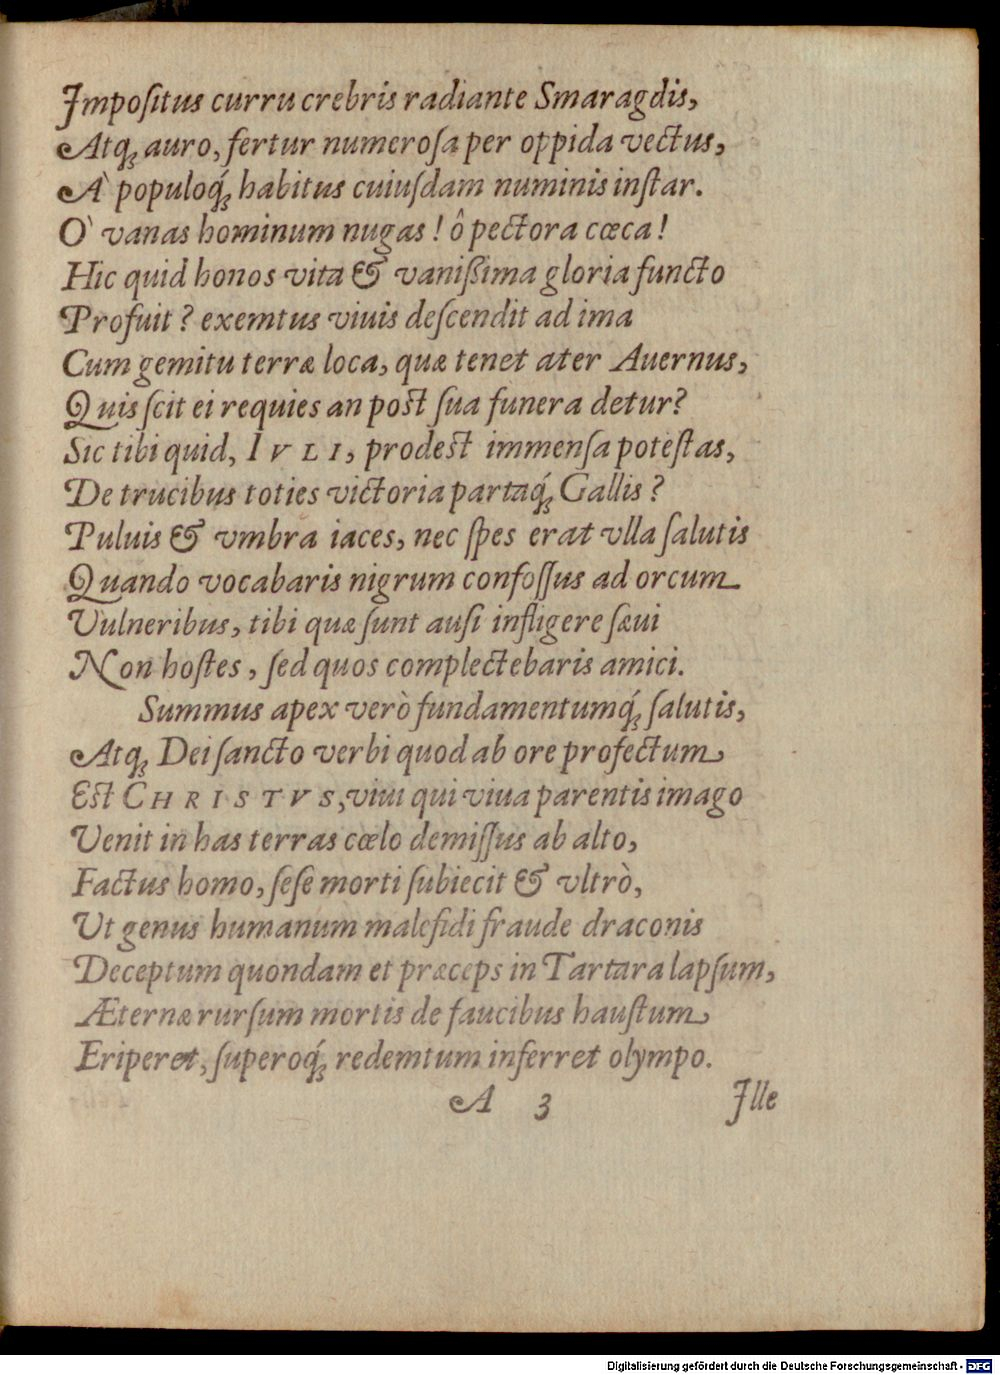 Impoſitus curru crebris radiante Smaragdis,
Atq́; auro, fertur numeroſa per oppida vectus,
À populoq́; habitus cuiuſdam numinis inſtar.
Ò vanas hominum nugas! ô pectora cœca!
Hic quid honos vita & vaniſsima gloria functo
Profuit? exemtus viuis deſcendit ad ima
Cum gemitu terræ loca, quæ tenet ater Auernus,
Quis ſcit ei requies an post ſua funera detur?
Sic tibi quid, IVLI, prodest immenſa poteſtas,
De trucibus toties victoria partaq́; Gallis?
Puluis & vmbra iaces, nec ſpes erat vlla ſalutis
Quando vocabaris nigrum confoſſus ad orcum
Vulneribus, tibi quæ ſunt auſi infligere ſæui
Non hoſtes, ſed quos complectebaris amici.
Summus apex verò fundamentumq́; ſalutis,
Atq; Dei ſancto verbi quod ab ore profectum
Est CHRISTVS, viui qui viua parentis imago
Venit in has terras cœlo demiſſus ab alto,
Factus homo, ſeſe morti ſubiecit & vltrò,
Ut genus humanum malefidi fraude draconis
Deceptum quondam et præceps in Tartara lapſum,
Æternæ rurſum mortis de faucibus hauſtum
Eriperet, ſuperoq́; redemtum inferret olympo.
A 3 Ille
Digitalisierung gefördert durch die Deutsche Forschungsgemeinschaft - DFG